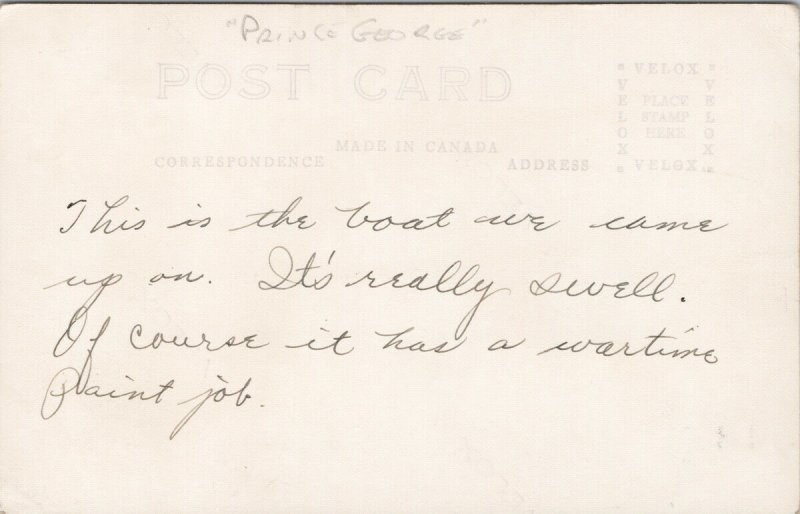 "PRINCE GEORGE"
POST CARD
VELOX
VELOX
PLACE
STAMP
HERE
VELOX
VELOX
MADE IN CANADA
CORRESPONDENCE
ADDRESS
This is the boat we came
up on. It's really swell.
Of course it has a wartime
paint job.